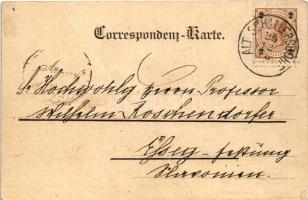 Correspondenz-Karte.
2 2
Sr Hochwohlg Herrn Professor
Wilhelm Roschendorfer
Esseg - festung
Slavonien.